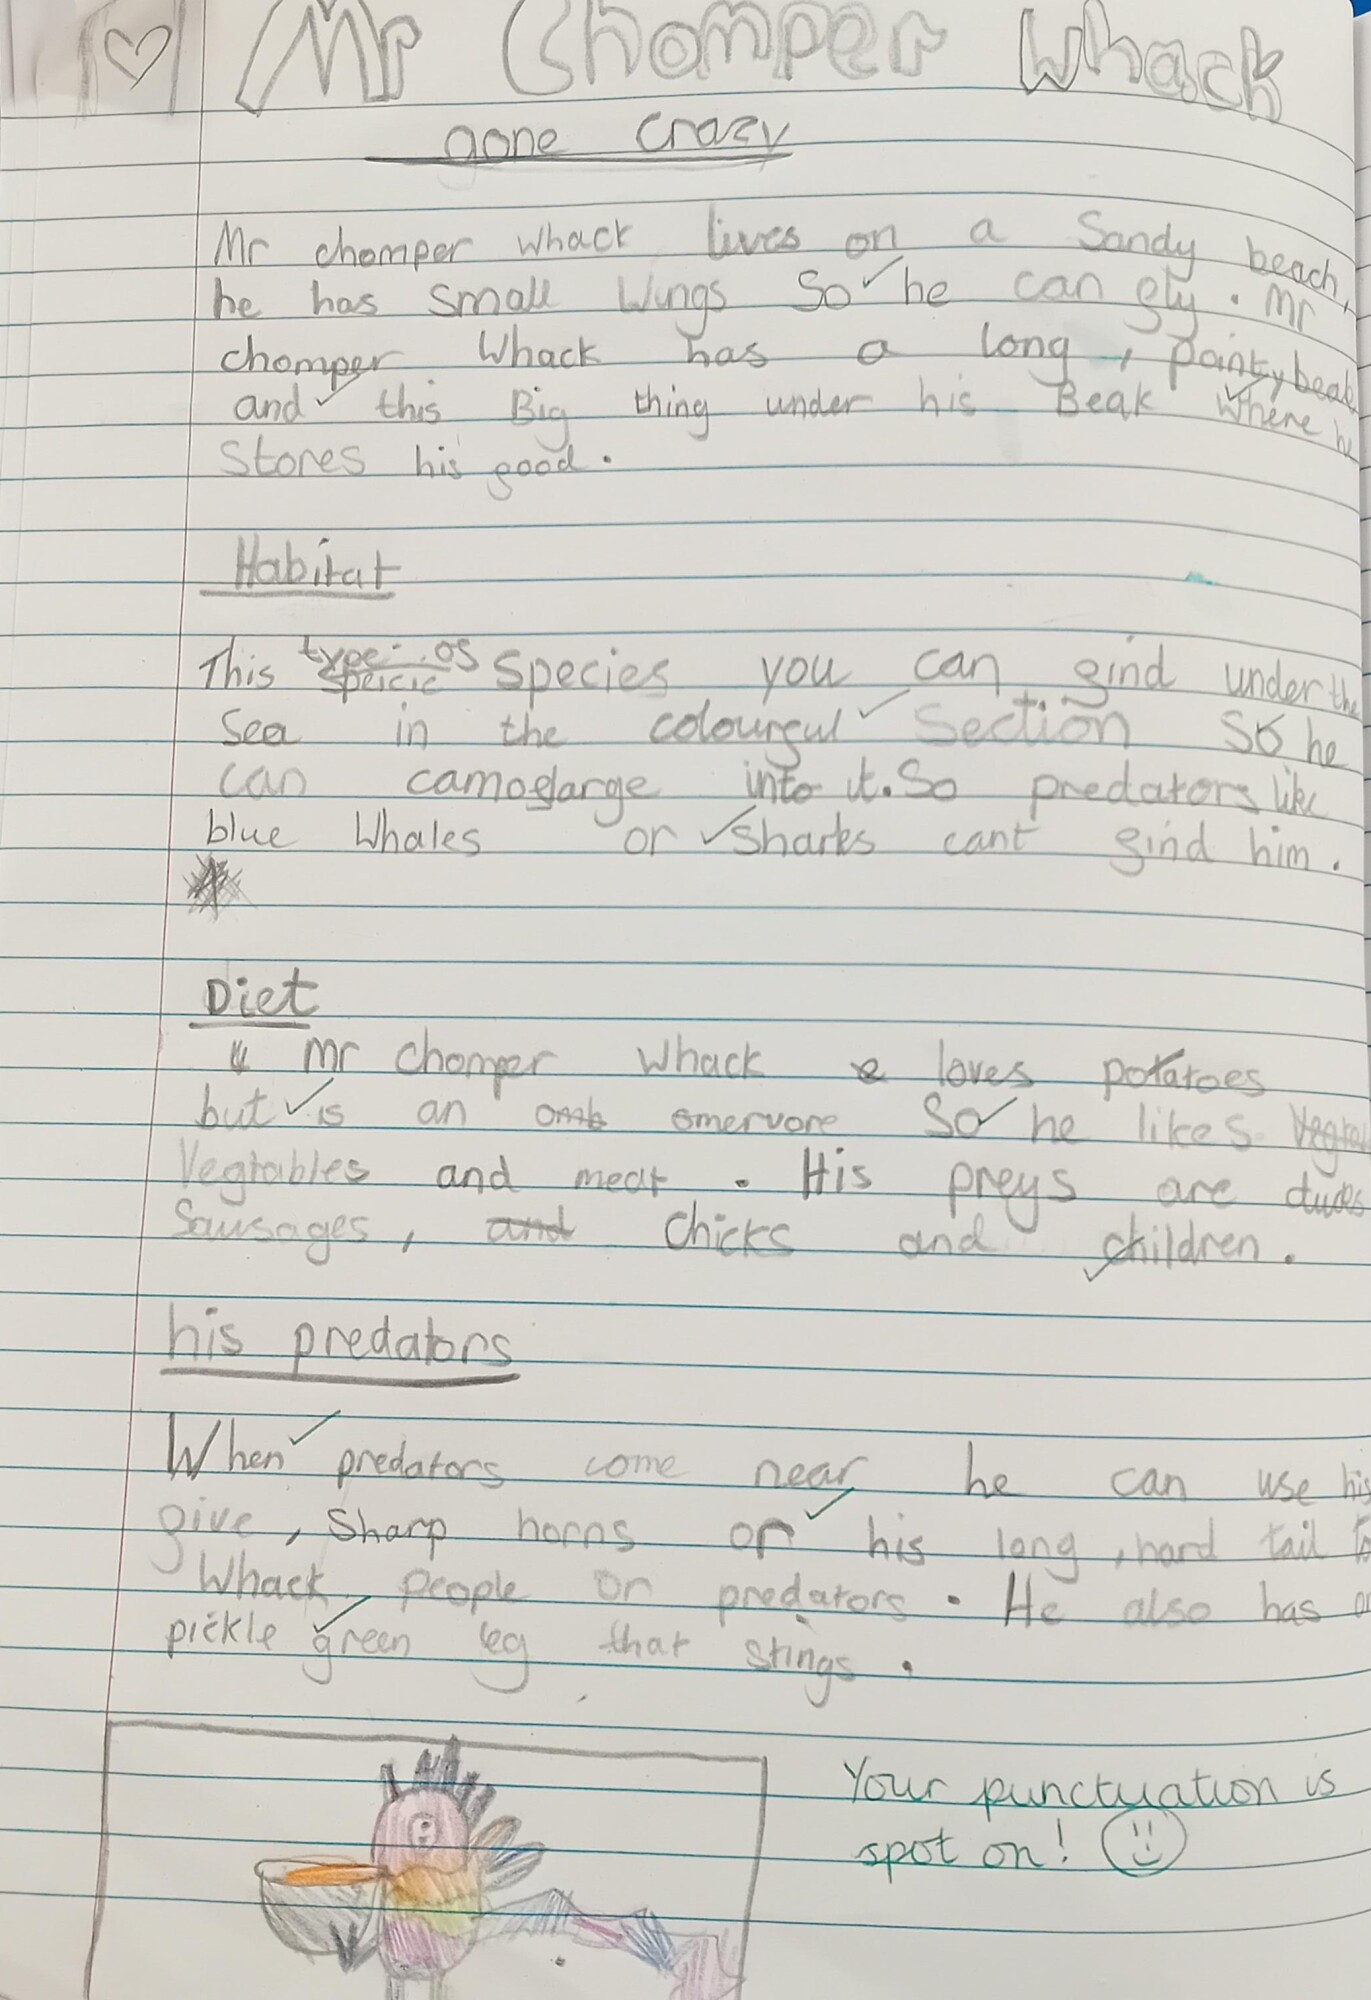 Mr Chomper Whack
gone crazy
Mr chomper whack lives on a Sandy beach,
he has small wings So he can fly. Mr
chomper Whack has a long, pointy beak
and this Big thing under his Beak where he
Stores his food.
Habitat
This type of species you can find under the
sea in the colourful section so he
can camoflarge into it. So predators like
blue Whales or sharks cant find him.
Diet
Mr chomper whack loves potatoes
but is an omervore So he likes
Vegtables and meat. His preys are
Sausages, and chicks and children.
his predators
When predators come near he can use his
five, sharp horns or his long, hard tail to
Whack people or predators. He also has a
pickle green leg that stings.
Your punctuation is
spot on!